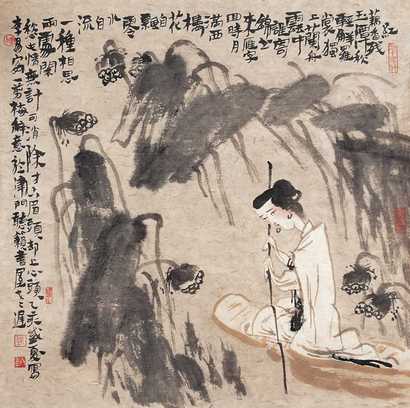 紅
藕香残
玉簟秋
輕解羅
裳獨
上蘭舟
雲中
誰寄
錦書
来雁字
回時月
满西
樓
花自
飄零
水自
流
一種相思
兩處閑
愁此情無計可消除才下眉頭却上心頭乙亥盛夏寫
李易安一剪梅解意於津門聽籟書屋